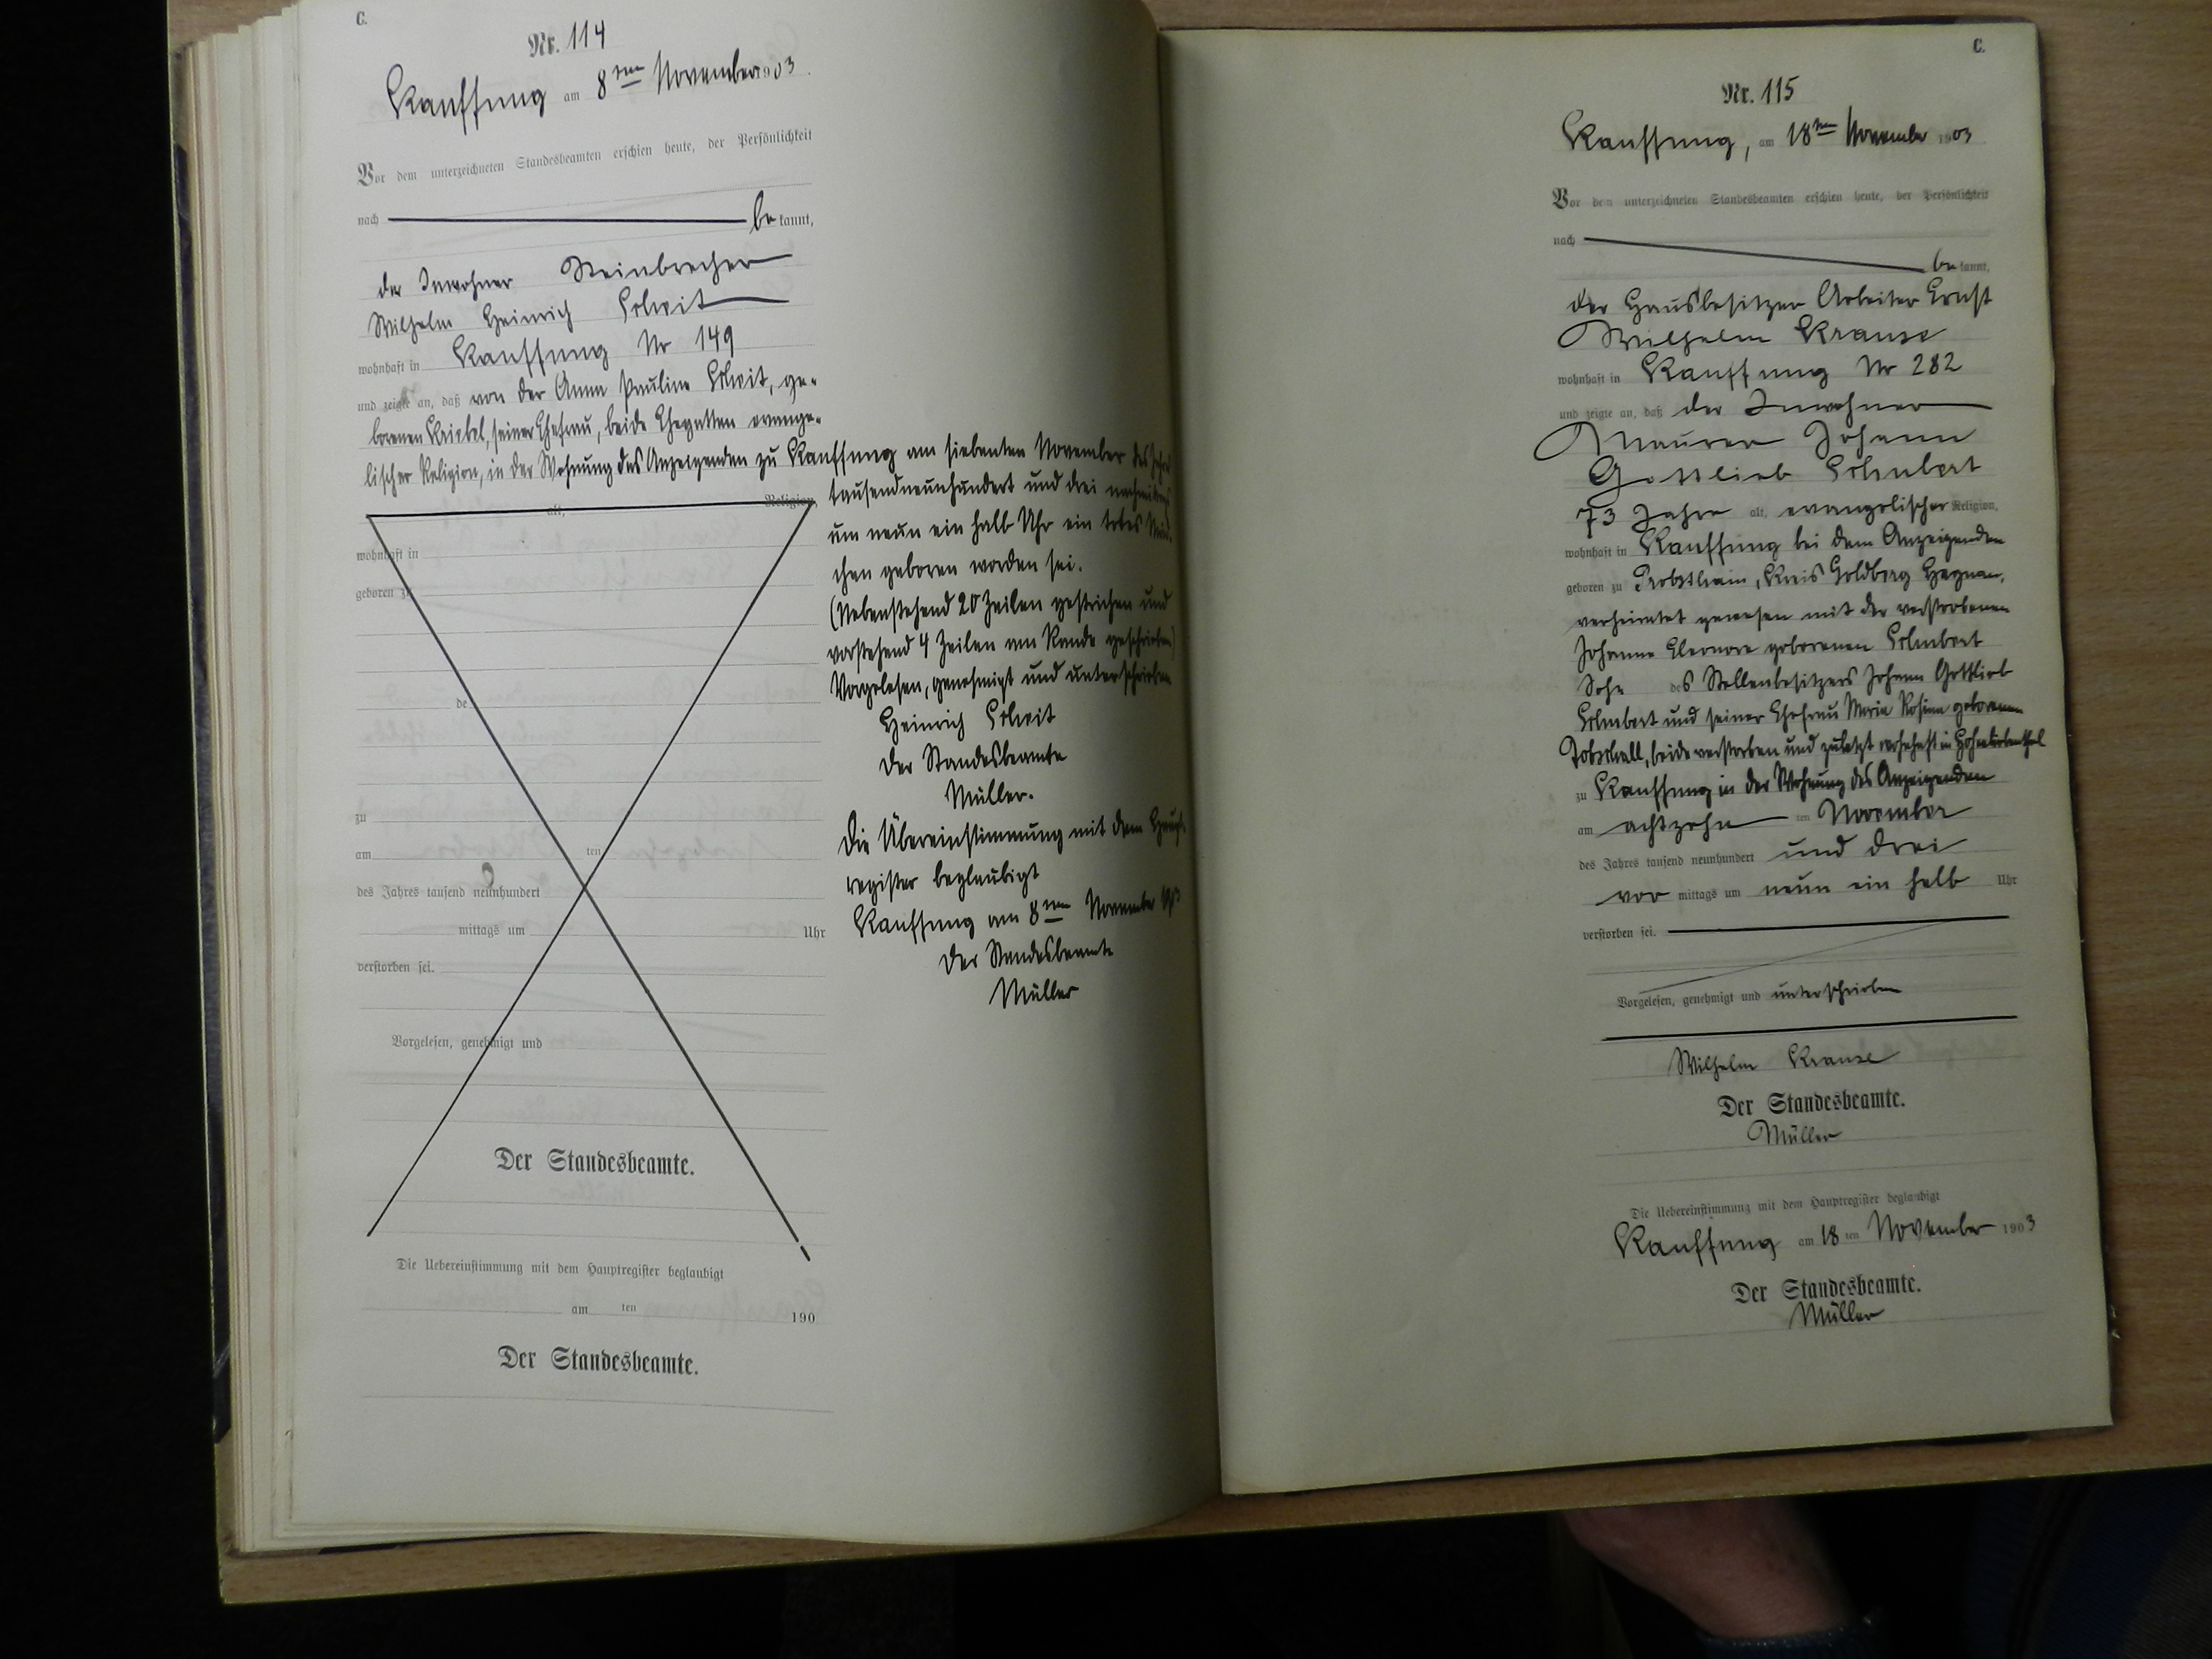 C.
Nr. 114
Kauffung am 8ten November 1903.
Vor dem unterzeichneten Standesbeamten erschien heute, der Persönlichkeit
nach be kannt,
der Inwohner Steinbrecher
Wilhelm Heinrich
wohnhaft in Kauffung Nr 149
und zeigte an, daß von der Anna Pauline ge-
borenen seiner Ehefrau, beide Ehegatten evange-
lischer Religion, in der Wohnung des Anzeigenden zu Kauffung am siebenten November des Jahres
tausendneunhundert und drei nachmittags
um neun ein halb Uhr ein totes Mäd-
chen geboren worden sei.
(Nebenstehend 20 Zeilen gestrichen und
vorstehend 4 Zeilen am Rande geschrieben)
Vorgelesen, genehmigt und unterschrieben
Heinrich
Der Standesbeamte
Müller.
Die Übereinstimmung mit dem Haupt-
register beglaubigt
Kauffung am 8ten November 1903
Der Standesbeamte
Müller
alt, Religion,
wohnhaft in
geboren zu
de
zu
am ten
des Jahres tausend neunhundert
mittags um Uhr
verstorben sei.
Vorgelesen, genehmigt und
Der Standesbeamte.
Die Uebereinstimmung mit dem Hauptregister beglaubigt
am ten 190
Der Standesbeamte.
C.
Nr. 115
Kauffung, am 18ten November 1903
Vor dem unterzeichneten Standesbeamten erschien heute, der Persönlichkeit
nach be kannt,
der Hausbesitzer Arbeiter Ernst
Wilhelm Krause
wohnhaft in Kauffung Nr 282
und zeigte an, daß der Inwohner
Maurer Johann
Gottlieb Schubert
73 Jahre alt, evangelischer Religion,
wohnhaft in Kauffung bei dem Anzeigenden
geboren zu Probsthain, Kreis Goldberg Haynau,
verheiratet gewesen mit der verstorbenen
Johanne Eleonore geborenen Schubert
Sohn des Stellenbesitzers Johann Gottlieb
Schubert und seiner Ehefrau Maria Rosina geborenen
beide verstorben und zuletzt wohnhaft in Hohenliebenthal
zu Kauffung in der Wohnung des Anzeigenden
am achtzehn ten November
des Jahres tausend neunhundert und drei
vor mittags um neun ein halb Uhr
verstorben sei.
Vorgelesen, genehmigt und unterschrieben
Wilhelm Krause
Der Standesbeamte.
Müller
Die Uebereinstimmung mit dem Hauptregister beglaubigt
Kauffung am 18 ten November 1903
Der Standesbeamte.
Müller